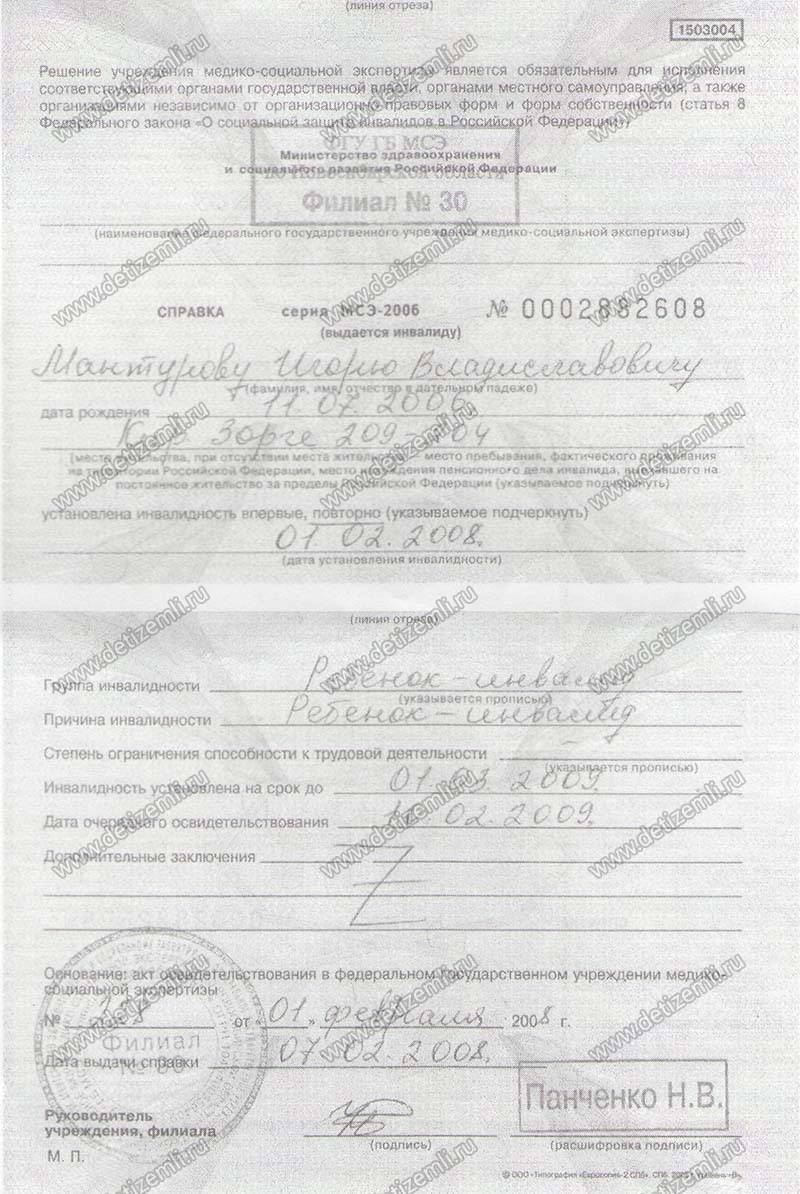 (линия отреза)
1503004
Решение учреждения медико-социальной экспертизы является обязательным для исполнения
соответствующими органами государственной власти, органами местного самоуправления, а также
организациями независимо от организационно-правовых форм и форм собственности (статья 8
Федерального закона «О социальной защите инвалидов в Российской Федерации»)
ФГУ ГБ МСЭ
Министерство здравоохранения
по Новосибирской области
и социального развития Российской Федерации
Филиал № 30
(наименование федерального государственного учреждения медико-социальной экспертизы)
СПРАВКА серия МСЭ-2006 № 0002882608
(выдается инвалиду)
Мантурову Игорю Владиславовичу
(фамилия, имя, отчество в дательном падеже)
дата рождения 11.07.2006
Зорге 209-
(место жительства, при отсутствии места жительства — место пребывания, фактического проживания
на территории Российской Федерации, место нахождения пенсионного дела инвалида, выехавшего на
постоянное жительство за пределы Российской Федерации (указываемое подчеркнуть)
установлена инвалидность впервые, повторно (указываемое подчеркнуть)
01.02.2008.
(дата установления инвалидности)
(линия отреза)
Группа инвалидности Ребенок-инвалид
(указывается прописью)
Причина инвалидности Ребенок-инвалид
Степень ограничения способности к трудовой деятельности –
(указывается прописью)
Инвалидность установлена на срок до 01.03.2009.
Дата очередного освидетельствования 02.2009.
Дополнительные заключения
Основание: акт освидетельствования в федеральном государственном учреждении медико-
социальной экспертизы
№ от «01» февраля 2008 г.
Филиал
№ 30
Дата выдачи справки 07.02.2008.
Панченко Н.В.
Руководитель
учреждения, филиала
(подпись) (расшифровка подписи)
М. П.
www.detizemli.ru